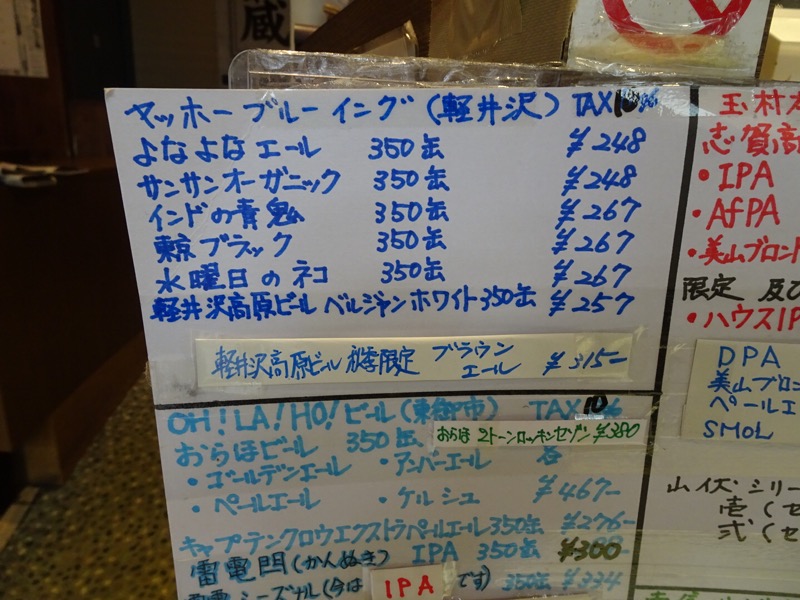 蔵
ヤッホーブルーイング(軽井沢) TAX10%
よなよなエール 350缶 ¥248
サンサンオーガニック 350缶 ¥248
インドの青鬼 350缶 ¥267
東京ブラック 350缶 ¥267
水曜日のネコ 350缶 ¥267
軽井沢高原ビール ベルジャンホワイト 350缶 ¥257
軽井沢高原ビール 秋季限定 ブラウン
エール ¥315-
OH!LA!HO!ビール(東御市) TAX10%
おらほ 2トーンロッキンセゾン ¥380
おらほビール 350缶 各
・ゴールデンエール ・アンバーエール
・ペールエール ・ケルシュ ¥467-
キャプテンクロウエクストラペールエール350缶 ¥276-
雷電閂(かんぬき) IPA 350缶 ¥300-
シーズナル(今は IPA です) 350缶 ¥334
玉村本
志賀高
・IPA
・AfPA
・美山ブロンド
限定 及び
・ハウスIP
DPA
美山ブロン
ペールエ
SMOL
山伏・シリー
壱(セ
弐(セ